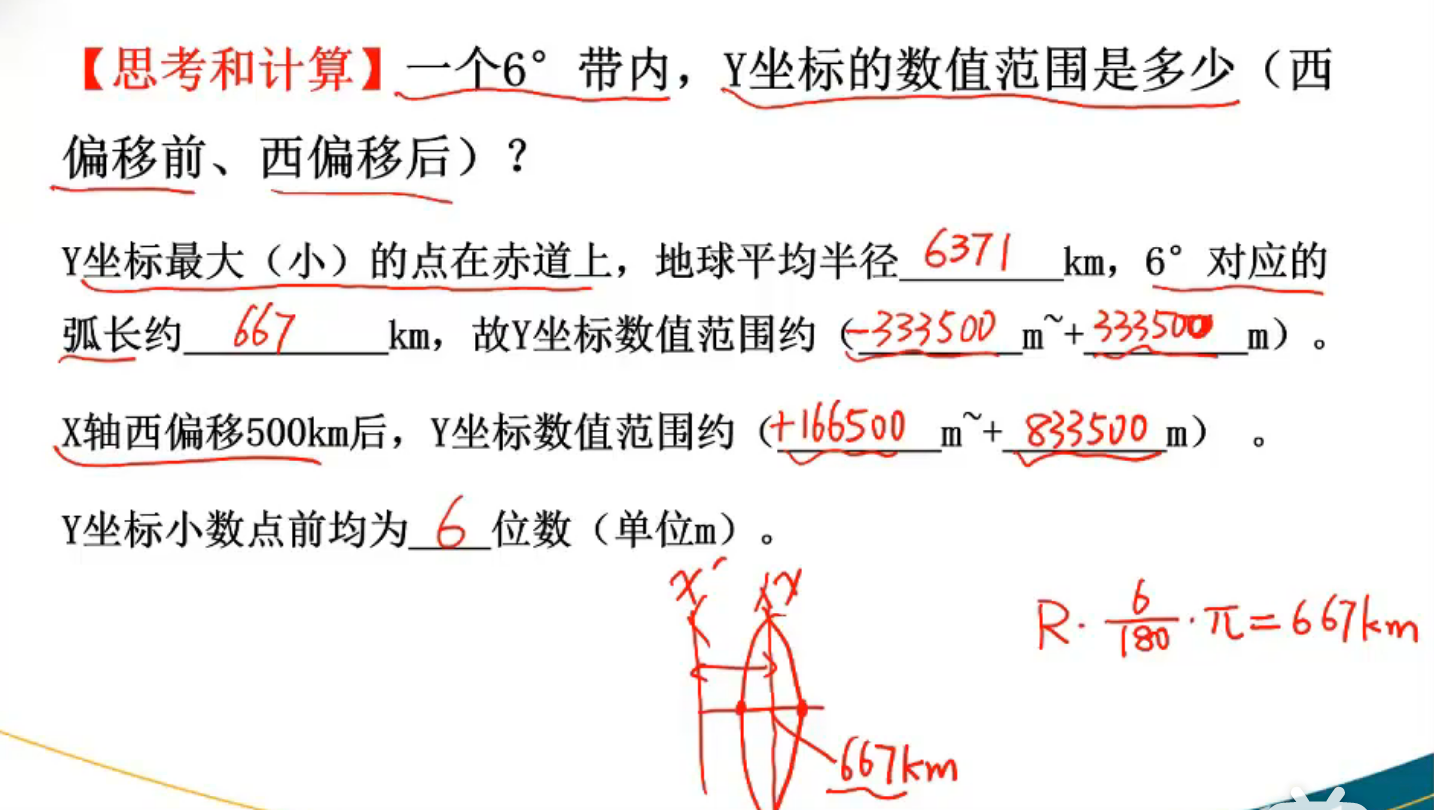 【思考和计算】一个6°带内，Y坐标的数值范围是多少（西
偏移前、西偏移后）？
Y坐标最大（小）的点在赤道上，地球平均半径6371km，6°对应的
弧长约667km，故Y坐标数值范围约（-333500m~+333500m）。
X轴西偏移500km后，Y坐标数值范围约（+166500m~+833500m）。
Y坐标小数点前均为6位数（单位m）。
X′ X
R·6/180·π=667km
667km